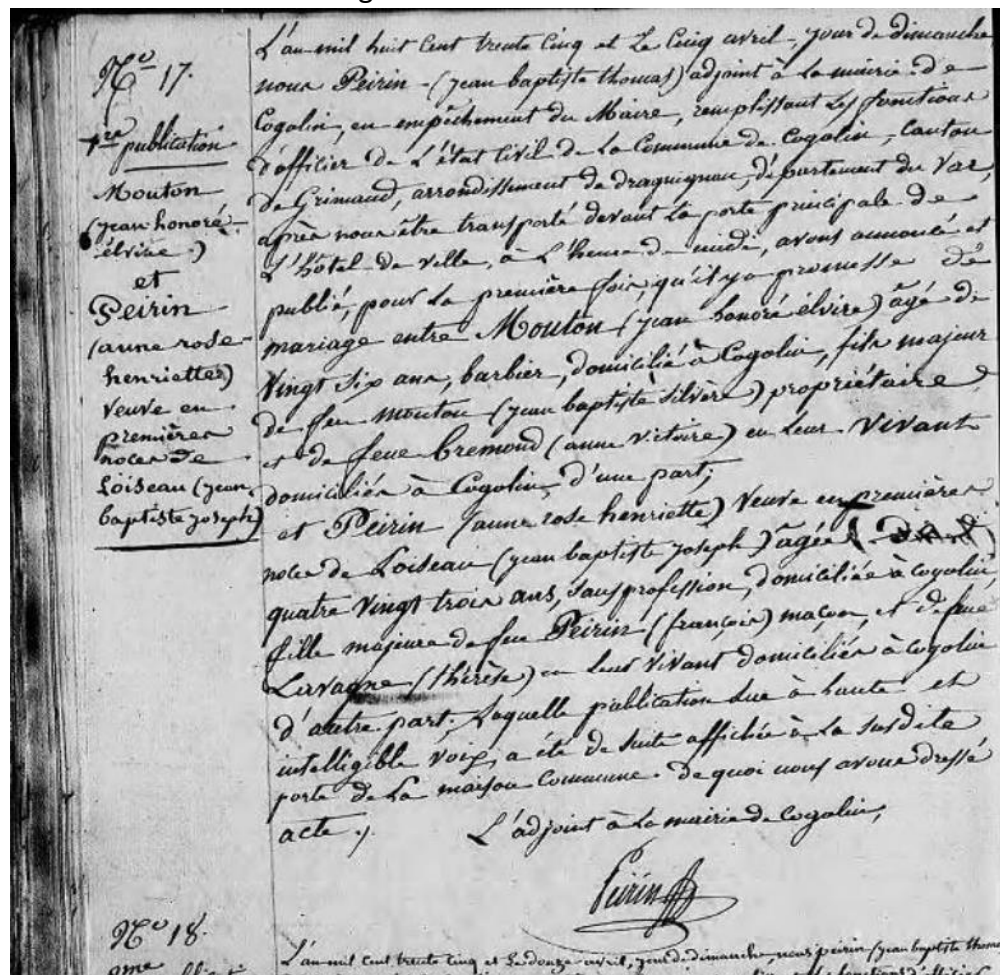 N.o 17.
1.re publication
Mouton
(jean honoré
élvire)
et
Peirin
(anne rose
henriette)
veuve en
premières
noces de
Loiseau (jean
baptiste joseph)
L'an mil huit cent trente cinq et Le cinq avril, jour de dimanche
nous Peirin (jean baptiste thomas) adjoint à La mairie de
Cogolin, en empêchement du Maire, remplissant Les fonctions
d'officier de L'état Civil de La Commune de Cogolin, Canton
de Grimaud, arrondissement de draguignan, département du Var,
après nous être transporté devant La porte principale de
L'hôtel de ville, à L'heure de midi, avons annoncé et
publié, pour La première fois, qu'il y a promesse de
mariage entre Mouton (jean honoré élvire) âgé de
vingt six ans, barbier, domicilié à Cogolin, fils majeur
de feu mouton (jean baptiste silvère) propriétaire
et de feue bremond (anne victoire) en Leur vivant
domiciliés à Cogolin, d'une part;
et Peirin (anne rose henriette) veuve en premières
noces de Loiseau (jean baptiste joseph) âgée
quatre vingt trois ans, sans profession, domiciliée à cogolin
fille majeure de feu Peirin (françois) maçon, et de feue
Lavagne (thérèse) en leur vivant domiciliés à cogolin
d'autre part; Laquelle publication lue à haute et
intelligible voix, a été de suite affichée à La susdite
porte de La maison Commune. de quoi nous avons dressé
acte.
L'adjoint à La mairie de Cogolin,
Peirin
N.o 18.
2me
L'an mil cent trente cinq et Le douze avril, jour de dimanche, nous peirin (jean baptiste thomas